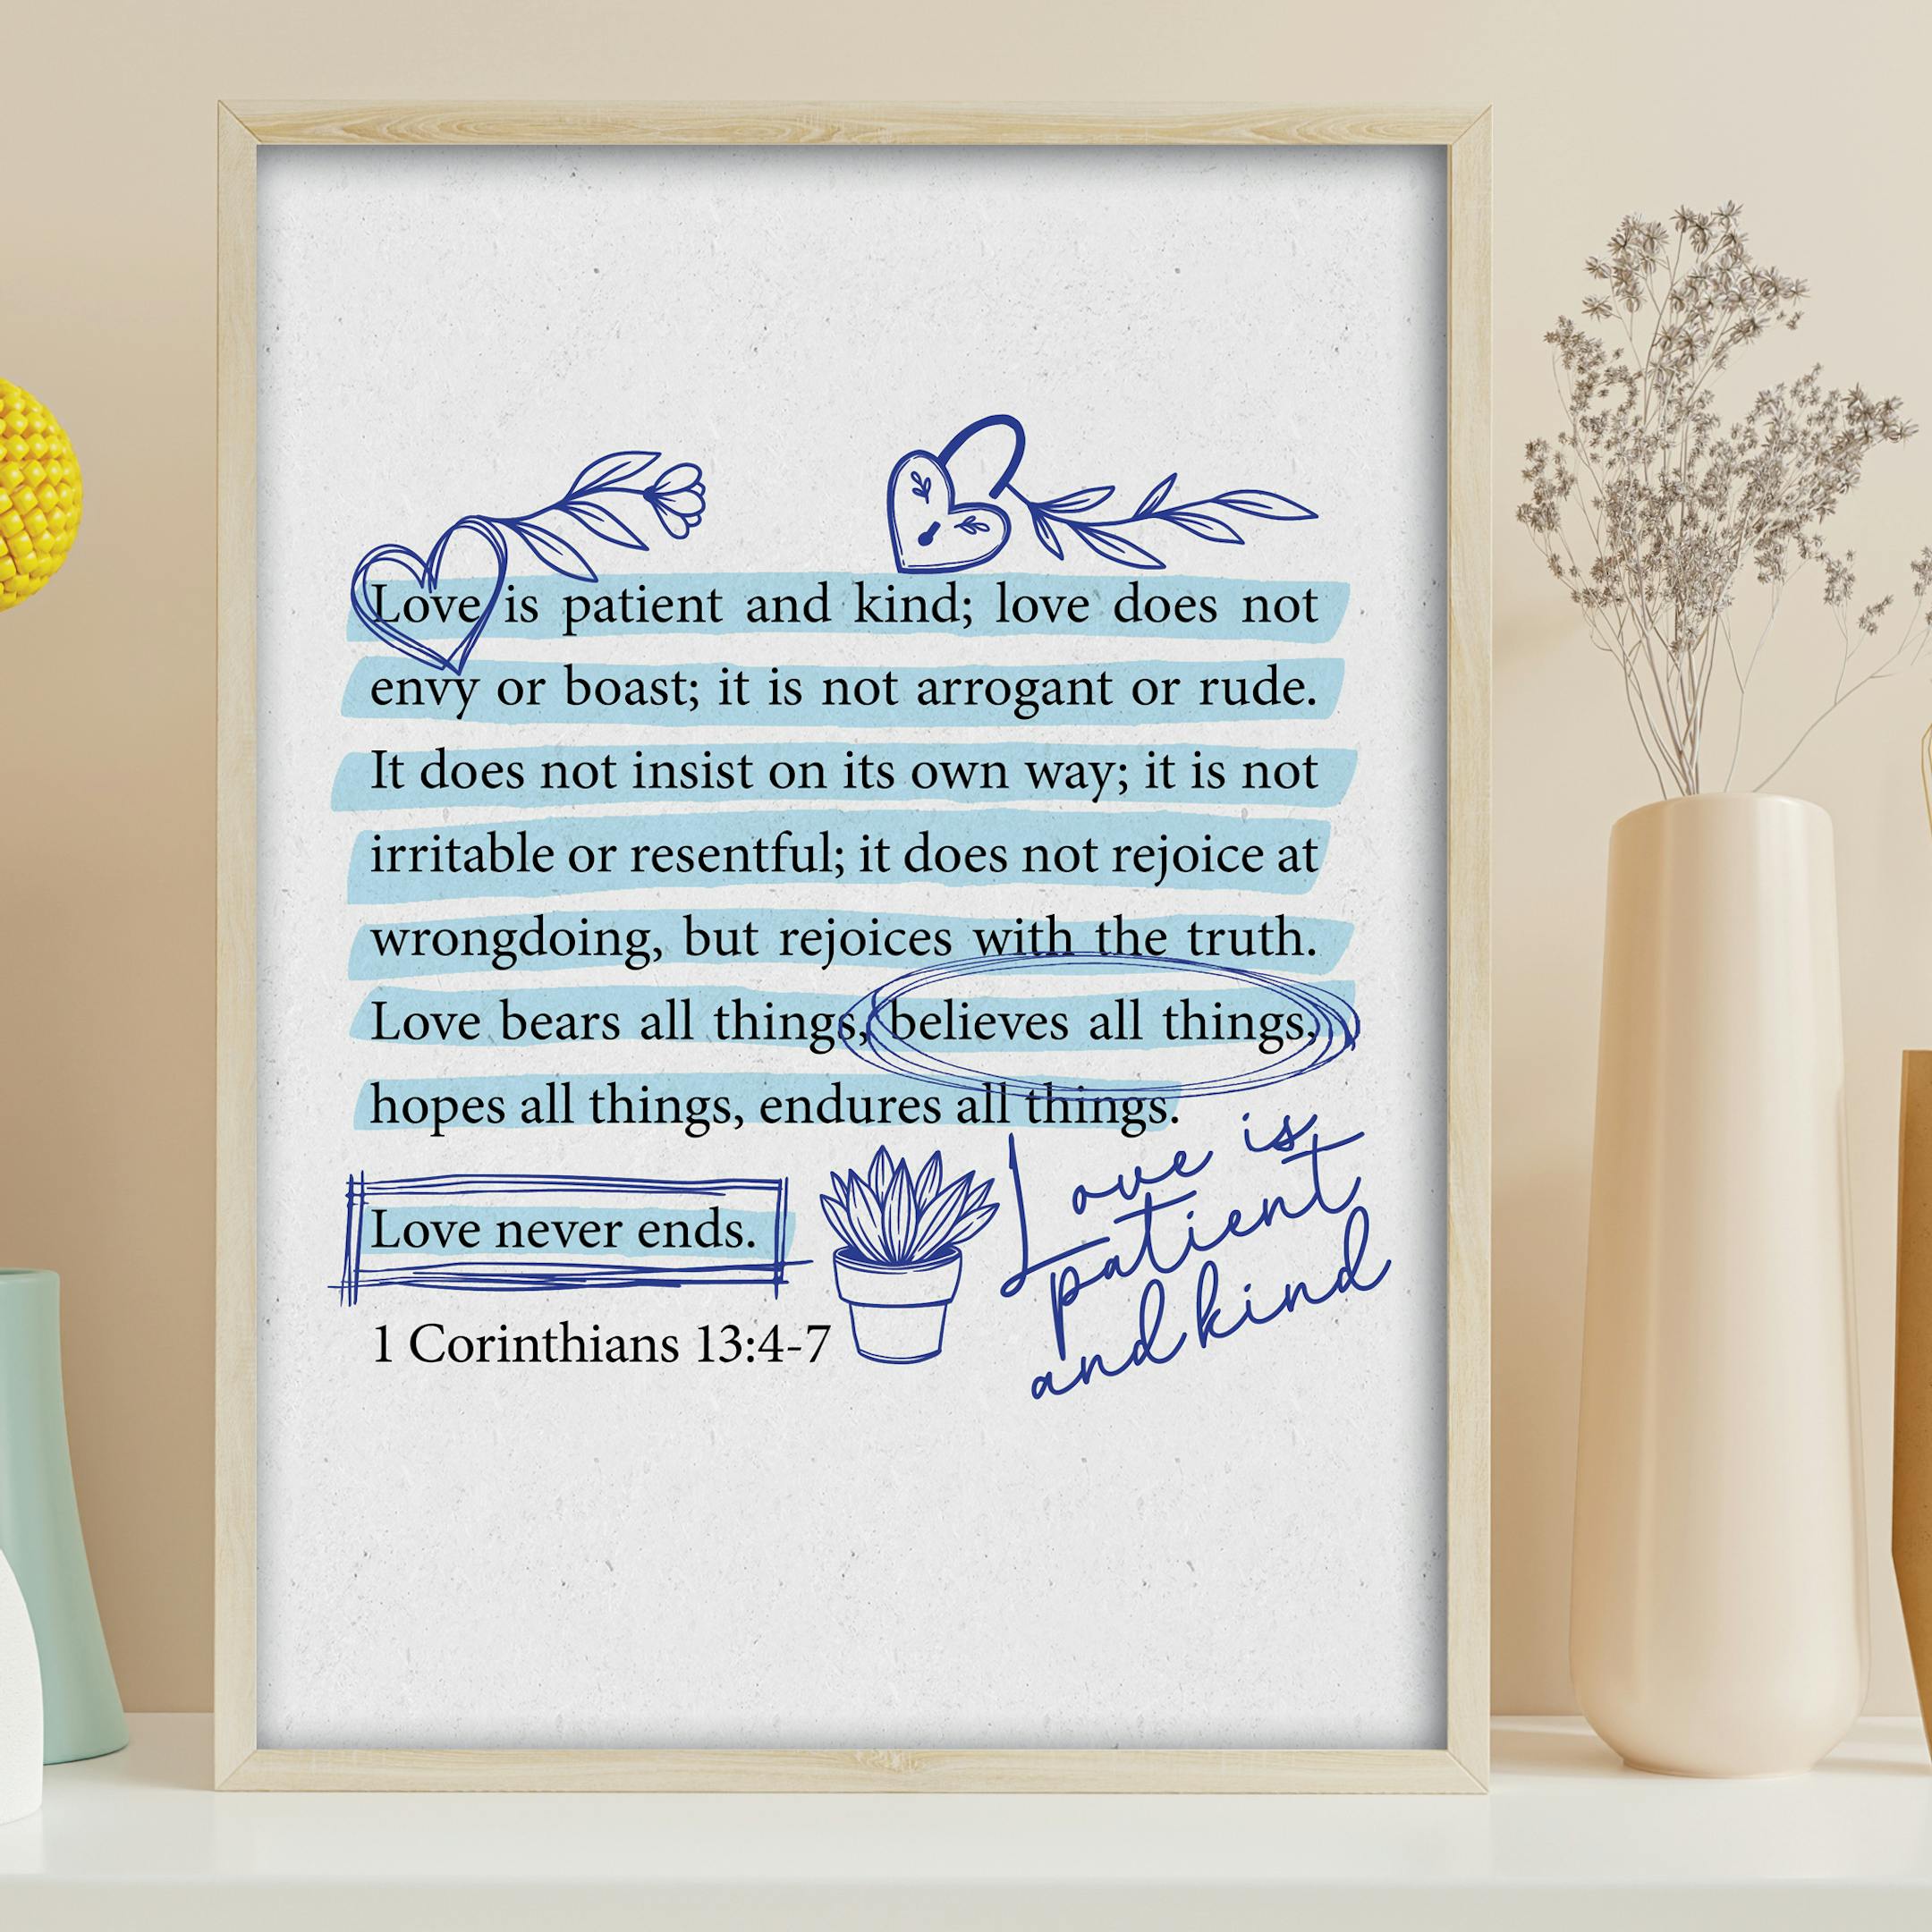 Love is patient and kind; love does not
envy or boast; it is not arrogant or rude.
It does not insist on its own way; it is not
irritable or resentful; it does not rejoice at
wrongdoing, but rejoices with the truth.
Love bears all things, believes all things,
hopes all things, endures all things.
Love never ends.
1 Corinthians 13:4-7
Love is
patient
and kind